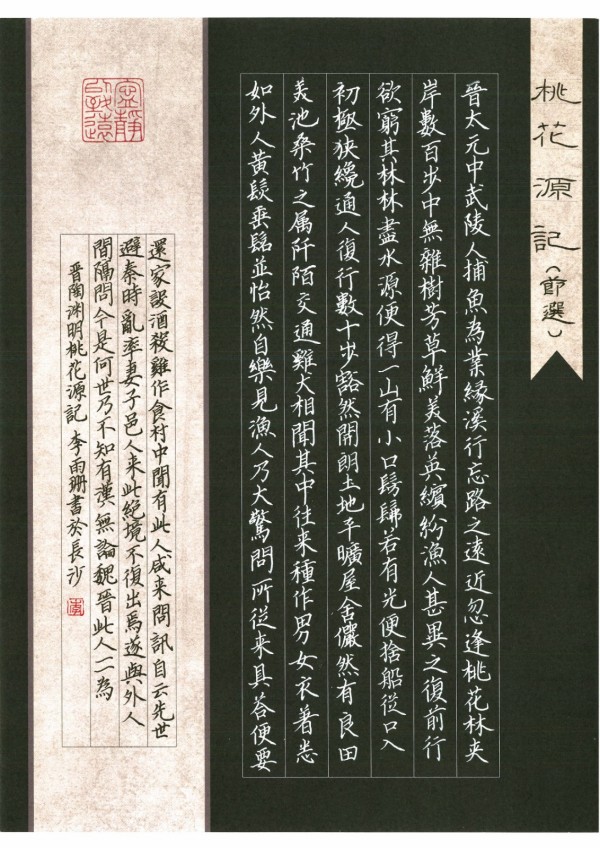 桃花源記（節選）
晉太元中武陵人捕魚為業緣溪行忘路之遠近忽逢桃花林夾
岸數百步中無雜樹芳草鮮美落英繽紛漁人甚異之復前行
欲窮其林林盡水源便得一山有小口髣髴若有光便捨船從口入
初極狹纔通人復行數十步豁然開朗土地平曠屋舍儼然有良田
美池桑竹之属阡陌交通雞犬相聞其中往来種作男女衣著悉
如外人黃髮垂髫並怡然自樂見漁人乃大驚問所從来具荅便要
寧靜致遠
還家設酒殺雞作食村中聞有此人咸来問訊自云先世
避秦時亂率妻子邑人来此絕境不復出焉遂與外人
間隔問今是何世乃不知有漢無論魏晉此人一一為
晉陶渊明桃花源記 李雨珊書於長沙